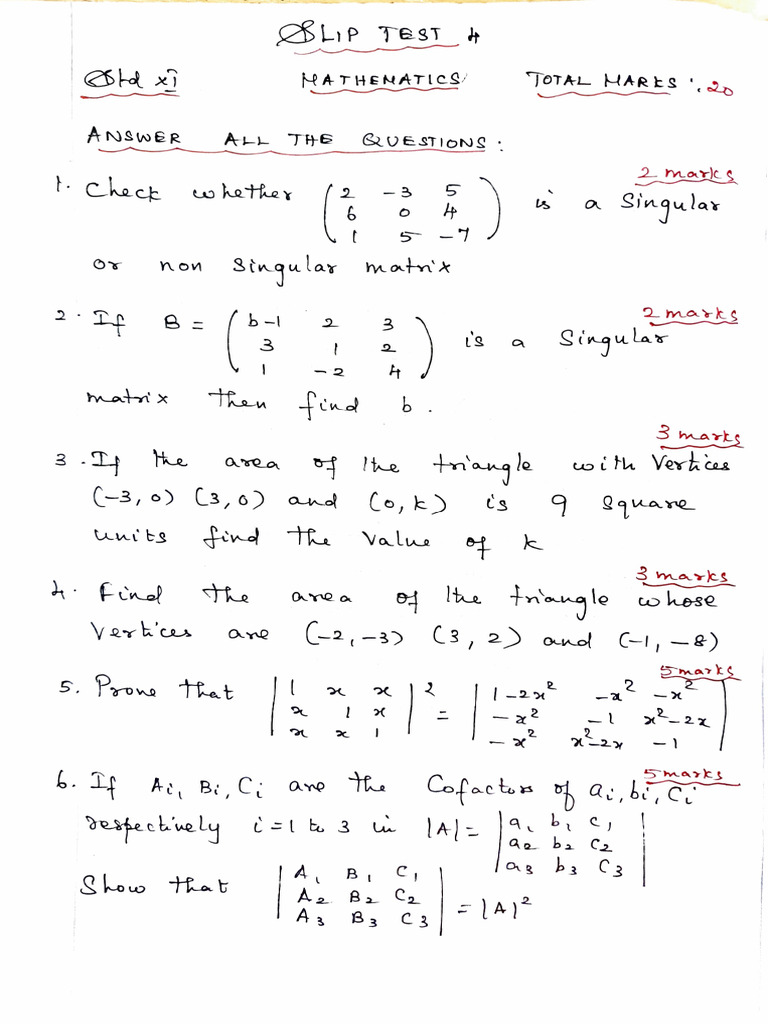 SLIP TEST 4
Std XI MATHEMATICS TOTAL MARKS : 20
ANSWER ALL THE QUESTIONS :
2 marks
1. Check whether ( 2 -3 5 ) is a Singular
6 0 4
1 5 -7
or non Singular matrix
2 marks
2. If B = ( b-1 2 3 ) is a Singular
3 1 2
1 -2 4
matrix then find b.
3 marks
3. If the area of the triangle with Vertices
(-3, 0) (3, 0) and (0, k) is 9 square
units find the value of k
3 marks
4. Find the area of the triangle whose
Vertices are (-2, -3) (3, 2) and (-1, -8)
5 marks
5. Prove that | 1 x x |² = | 1-2x² -x² -x² |
x 1 x -x² -1 x²-2x
x x 1 -x² x²-2x -1
5 marks
6. If Ai, Bi, Ci are the Cofactors of ai, bi, ci
respectively i=1 to 3 in |A| = | a₁ b₁ c₁ |
a₂ b₂ c₂
a₃ b₃ c₃
Show that | A₁ B₁ C₁ |
A₂ B₂ C₂ = |A|²
A₃ B₃ C₃